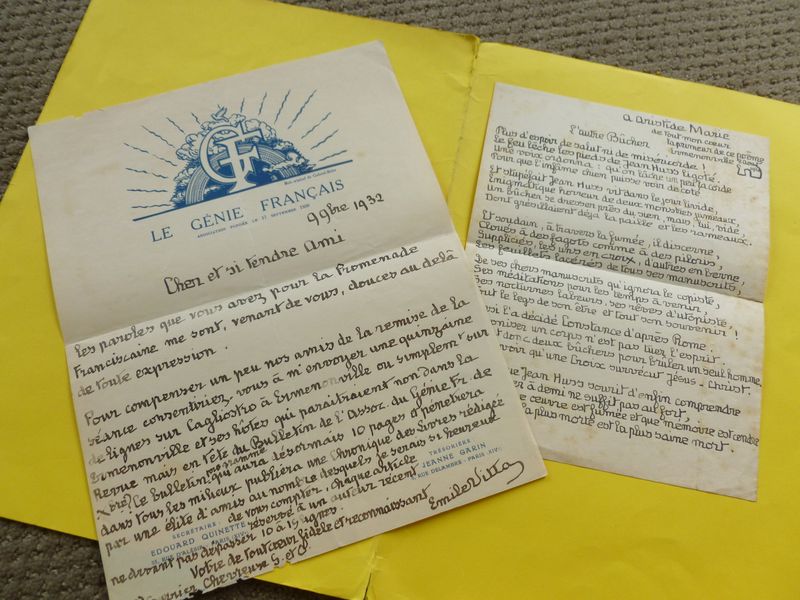 GF
LE GÉNIE FRANÇAIS
ASSOCIATION FONDÉE LE 17 SEPTEMBRE
9 9bre 1932
Cher et si tendre Ami
Les paroles que vous avez pour la Promenade
Franciscaine me sont, venant de vous, douces au delà
de toute expression.
Pour compenser un peu nos amis de la remise de la
séance consentiriez vous à m'envoyer une quinzaine
de lignes sur Cagliostro à Ermenonville ou simplemt sur
Ermenonville et ses hôtes qui paraitraient non dans la
Revue mais en tête du Bulletin de l'Assoc. du Génie fr. de
Xbre? Ce bulletin programme qui aura désormais 10 pages et pénétrera
dans tous les milieux publiera une Chronique des livres rédigée
par une élite d'amis au nombre desquels je serais si heureux
de vous compter, chaque article
ne devant pas dépasser 10 à 15 lignes.
réservé à un auteur récent
Votre de tout cœur fidèle et reconnaissant
Emile Vitta
Chevreuse S. et O.
SECRÉTAIRE
EDOUARD QUINETTE
TRÉSORIÈRE
JEANNE GARIN
RUE DELAMBRE - PARIS-XIV
A Aristide Marie
de tout mon cœur
la primeur de ce poème
L'autre Bûcher
Plus d'espoir de salut ni de miséricorde!
Le feu lèche les pieds de Jean Huss ligoté.
Une voix ordonna: qu'on lâche un peu la corde
Pour que l'infâme chien puisse voir de côté
Et stupéfait Jean Huss vit dans le jour livide,
Enigmatique horreur de deux monstres jumeaux,
Un bûcher se dresser près du sien, mais, lui, vide,
Dont grésillaient déjà la paille et les rameaux.
Et soudain, à travers la fumée, il discerne,
Cloués à des fagots comme à des piloris,
Suppliciés, les uns en croix, d'autres en berne,
Les feuillets lacérés de tous ses manuscrits,
De ses chers manuscrits qu'ignora le copiste,
Ses méditations pour les temps à venir,
Ses nocturnes labeurs, ses rêves d'utopiste,
Tout le legs de son être et tout son souvenir!
si l'a décidé Constance d'après Rome.
un corps n'est pas tuer l'esprit.
donc deux bûchers pour brûler un seul homme,
voir qu'une Croix survécut Jésus-Christ.
que Jean Huss sourit d'enfin comprendre
à demi ne suffit pas au fort,
œuvre est fumée et que mémoire est cendre
la plus morte est la plus saine mort.